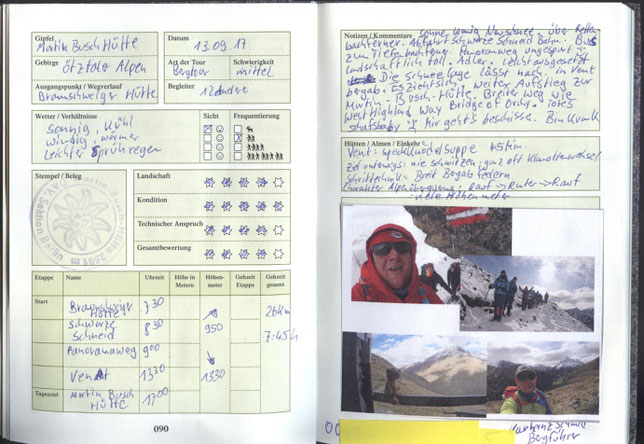 Gipfel
Martin Busch Hütte
Datum
13.09.17
Gebirge
Ötztaler Alpen
Art der Tour
Bergtour
Schwierigkeit
mittel
Ausgangspunkt / Wegverlauf
Braunschweiger Hütte
Begleiter
12 andere
Wetter / Verhältnisse
sonnig, kühl
windig, wärmer
leichter Sprühregen
Sicht
Frequentierung
Stempel / Beleg
Landschaft
Kondition
Technischer Anspruch
Gesamtbewertung
Etappe
Name
Uhrzeit
Höhe in Metern
Höhenmeter
Gehzeit Etappe
Gehzeit gesamt
Start
Braunschweiger Hütte
7 30
26 km
Schwarze Schneid
8 30
950
7:45 h
Panoramaweg
9 00
Vent
13 30
1330
Tagesziel
Martin Busch Hütte
17 00
090
Notizen / Kommentare
sonne, wenig Neuschnee über Rettenbachferner. Abfahrt Schwarze Schneid Bahn. Bus
zum Tiefenbachferner. Panoramaweg
landschaftlich toll. Adler. Leicht ausgesetzt
Die Schneelage lässt nach. in Vent
bergab. Es zieht sich. Weiter Aufstieg zur
Martin-Busch-Hütte. Breiter Weg wie
West Highland Way Bridge of Orchy. Totes
Schafsbaby. Mir gehts beschissen. Bin krank
Hütten / Almen / Einkehr
Vent: Speckknödelsuppe 45 min
Schritttechnik: Breit Bergab federn
Charakter Alpenüberquerung: Rauf → Runter → Rauf
viele Höhenmeter
Bergführer